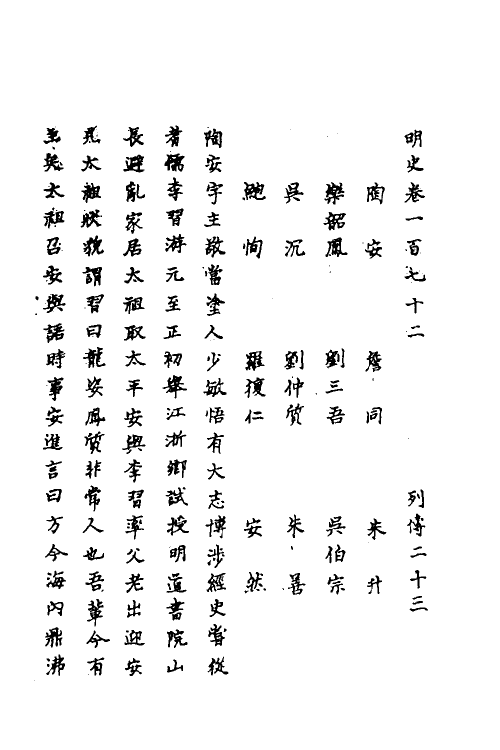 明史卷一百七十二 列傳二十三
陶安 詹同 朱升
樂韶鳳 劉三吾 吳伯宗
吳沉 劉仲質 朱善
鮑恂 羅復仁 安然
陶安字主敬當塗人少敏悟有大志博涉經史嘗從
耆儒李習游元至正初舉江浙鄉試授明道書院山
長避亂家居太祖取太平安與李習率父老出迎安
見太祖狀貌謂習曰龍姿鳳質非常人也吾輩今有
主矣太祖召安與語時事安進言曰方今海內鼎沸